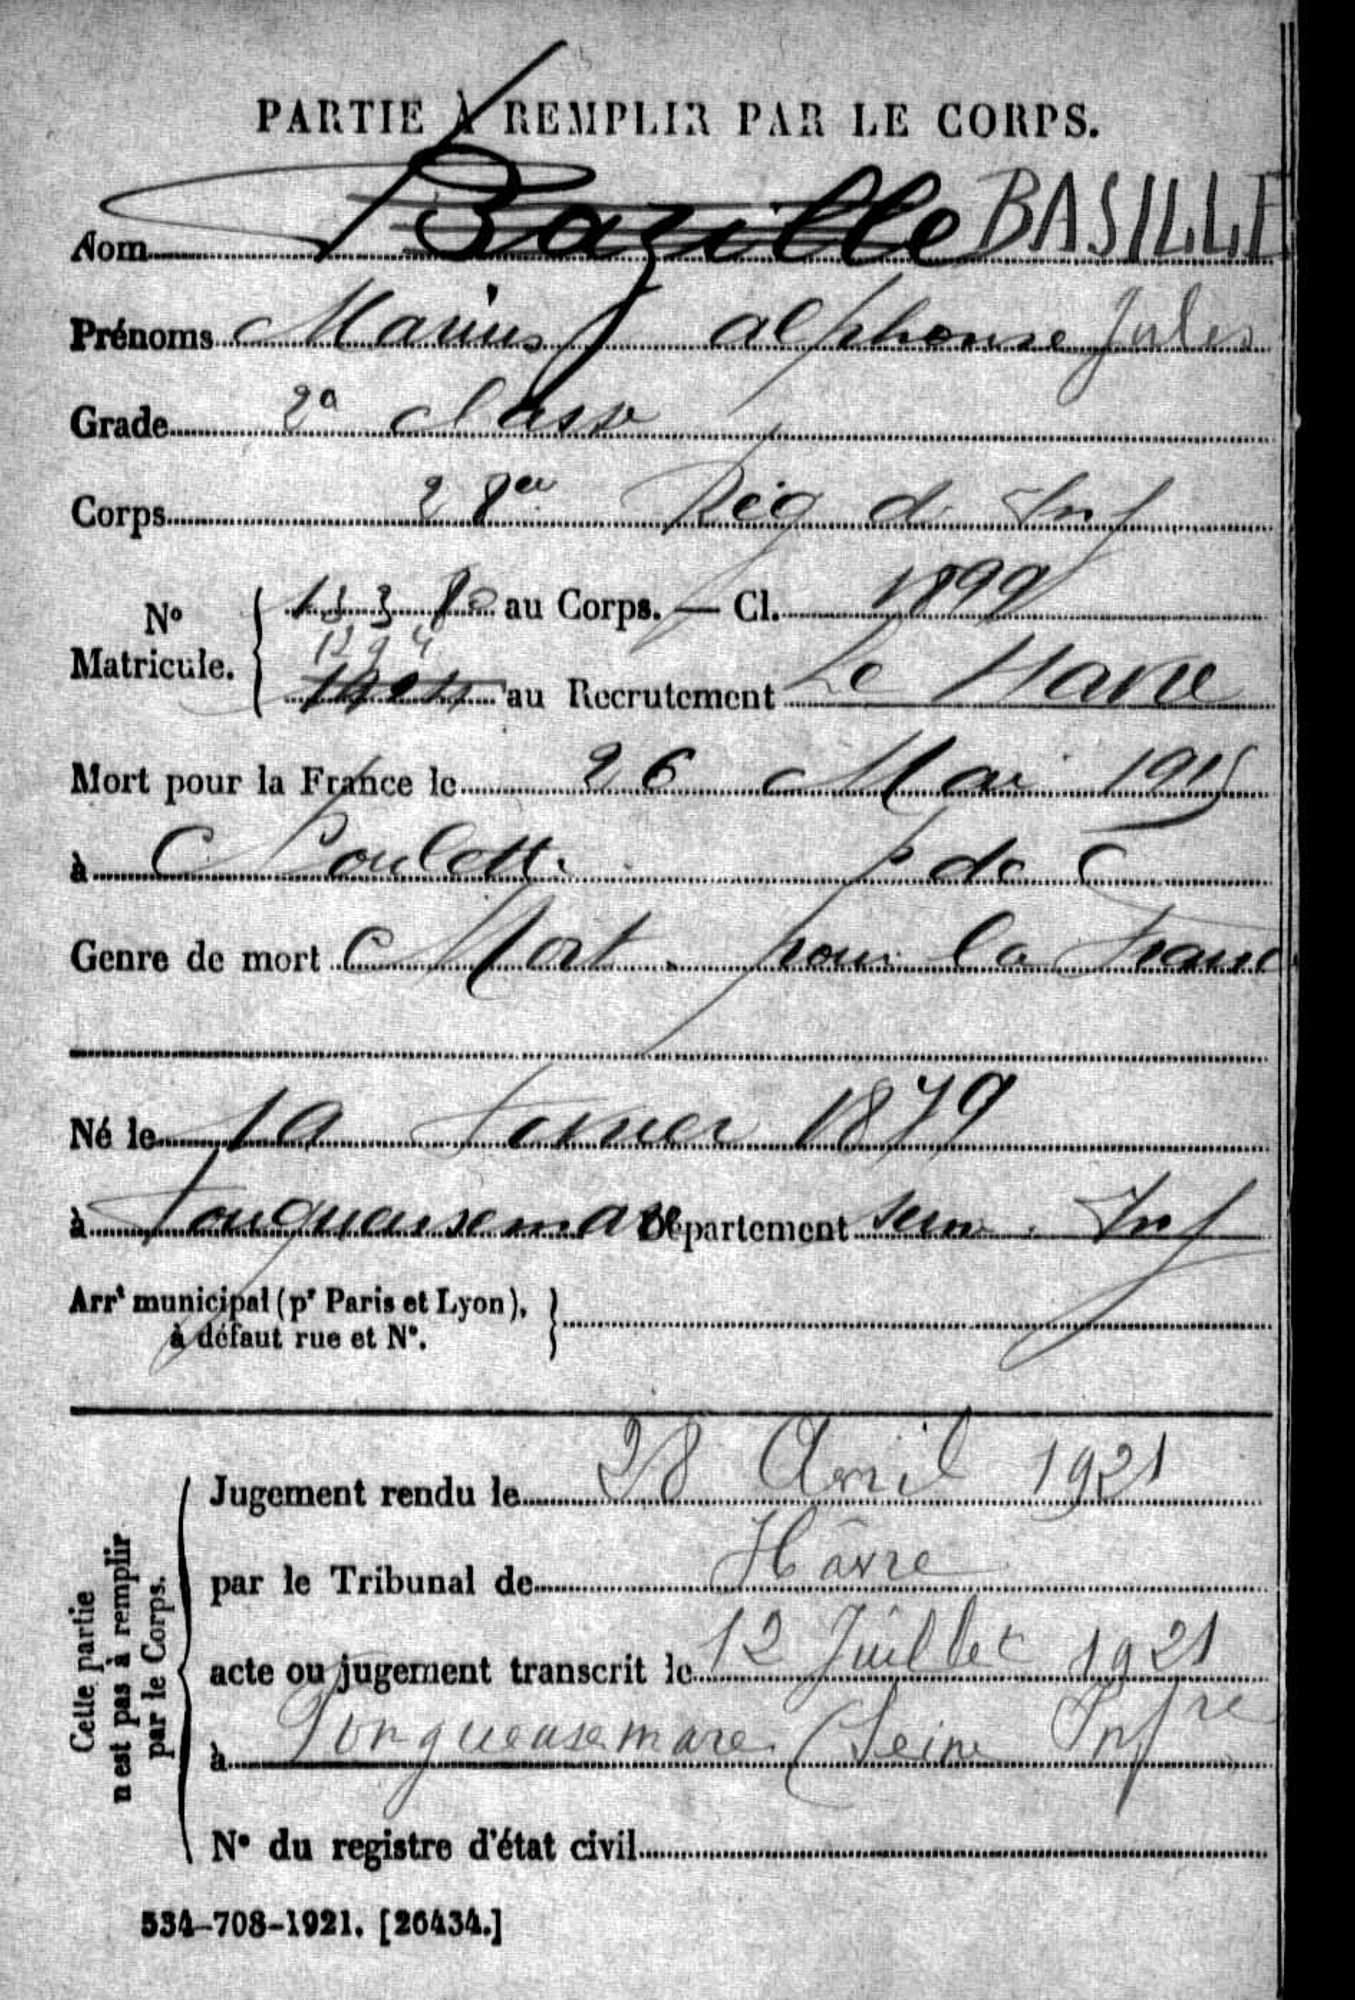 PARTIE À REMPLIR PAR LE CORPS.
Nom Bazille BASILLE
Prénoms Marius Alphonse Jules
Grade 2e classe
Corps 28e Reg d Inf
No Matricule. 13380 au Corps. — Cl. 1899
1294
au Recrutement Le Havre
Mort pour la France le 26 Mai 1915
à p de C
Genre de mort Mort pour la France
Né le 10 1879
à Fongueusemare Département Sein. Inf
Arrt municipal (pr Paris et Lyon),
à défaut rue et No.
Cette partie
n'est pas à remplir
par le Corps.
Jugement rendu le 28 Avril 1921
par le Tribunal de Hâvre
acte ou jugement transcrit le 12 Juillet 1921
à Fongueusemare (Seine Infre
No du registre d'état civil
534-708-1921. [26434.]